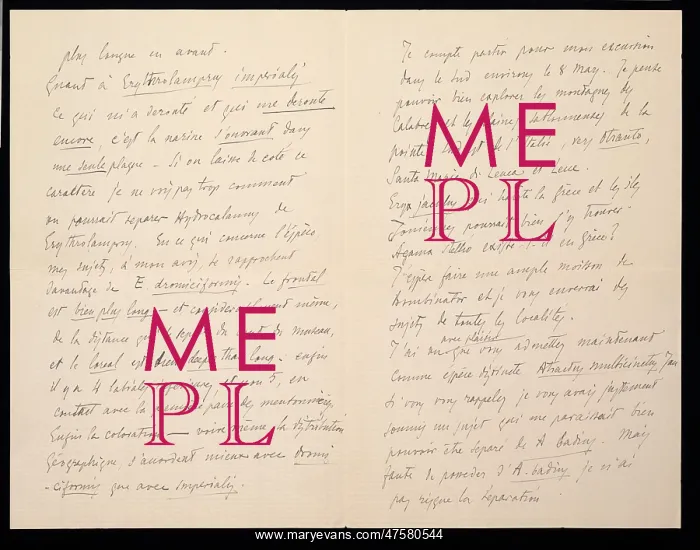 plus longue en avant.
Quant à Erythrolamprus imperialis
ce qui m'a derouté et qui me deroute
encore, c'est la narine s'ouvrant dans
une seule plaque - Si on laisse de coté ce
caractère je ne vois pas trop comment
on pourrait separer Hydrocalamus de
Erythrolamprus. En ce qui concerne l'espèce
mes sujets, à mon avis, se rapprochent
davantage de E dromiciformis. Le frontal
est bien plus long et considerablement même,
de la distance qui le separe du bout du museau,
et le loreal est bien deeper than long. enfin
il y a 4 labiales et non 5, en
contact avec la première paire de mentonnières.
Enfin la coloration - voire même la distribution
géographique, s'accordent mieux avec dromi
-ciformis que avec imperialis.
Je compte partir pour mon excursion
dans le Sud environ le 8 May. Je pense
pouvoir bien explorer les montagnes des
Calabres et les plaines sablonneuses de la
pointe de l'Italie, vers Otranto,
Santa Maria di Leuca et Lecce.
Eryx jaculus qui habite la Grèce et les iles
Ioniennes pourrait bien s'y trouver.
Agama Stellio existe-t-il en Grèce?
J'espère faire une ample moisson de
Bombinator et je vous enverrai des
sujets de toutes les localités.
avec plaisir
J'ai vu que vous admettez maintenant
comme espèce distincte Atractus multicinctus Jan
Si vous vous rappelez je vous avais justement
soumis un sujet qui me paraissait bien
pouvoir être separé de A badius. Mais
faute de posseder d'A. badius je n'ai
pas risqué la separation.
ME
PL
ME
PL
www.maryevans.com/47580544